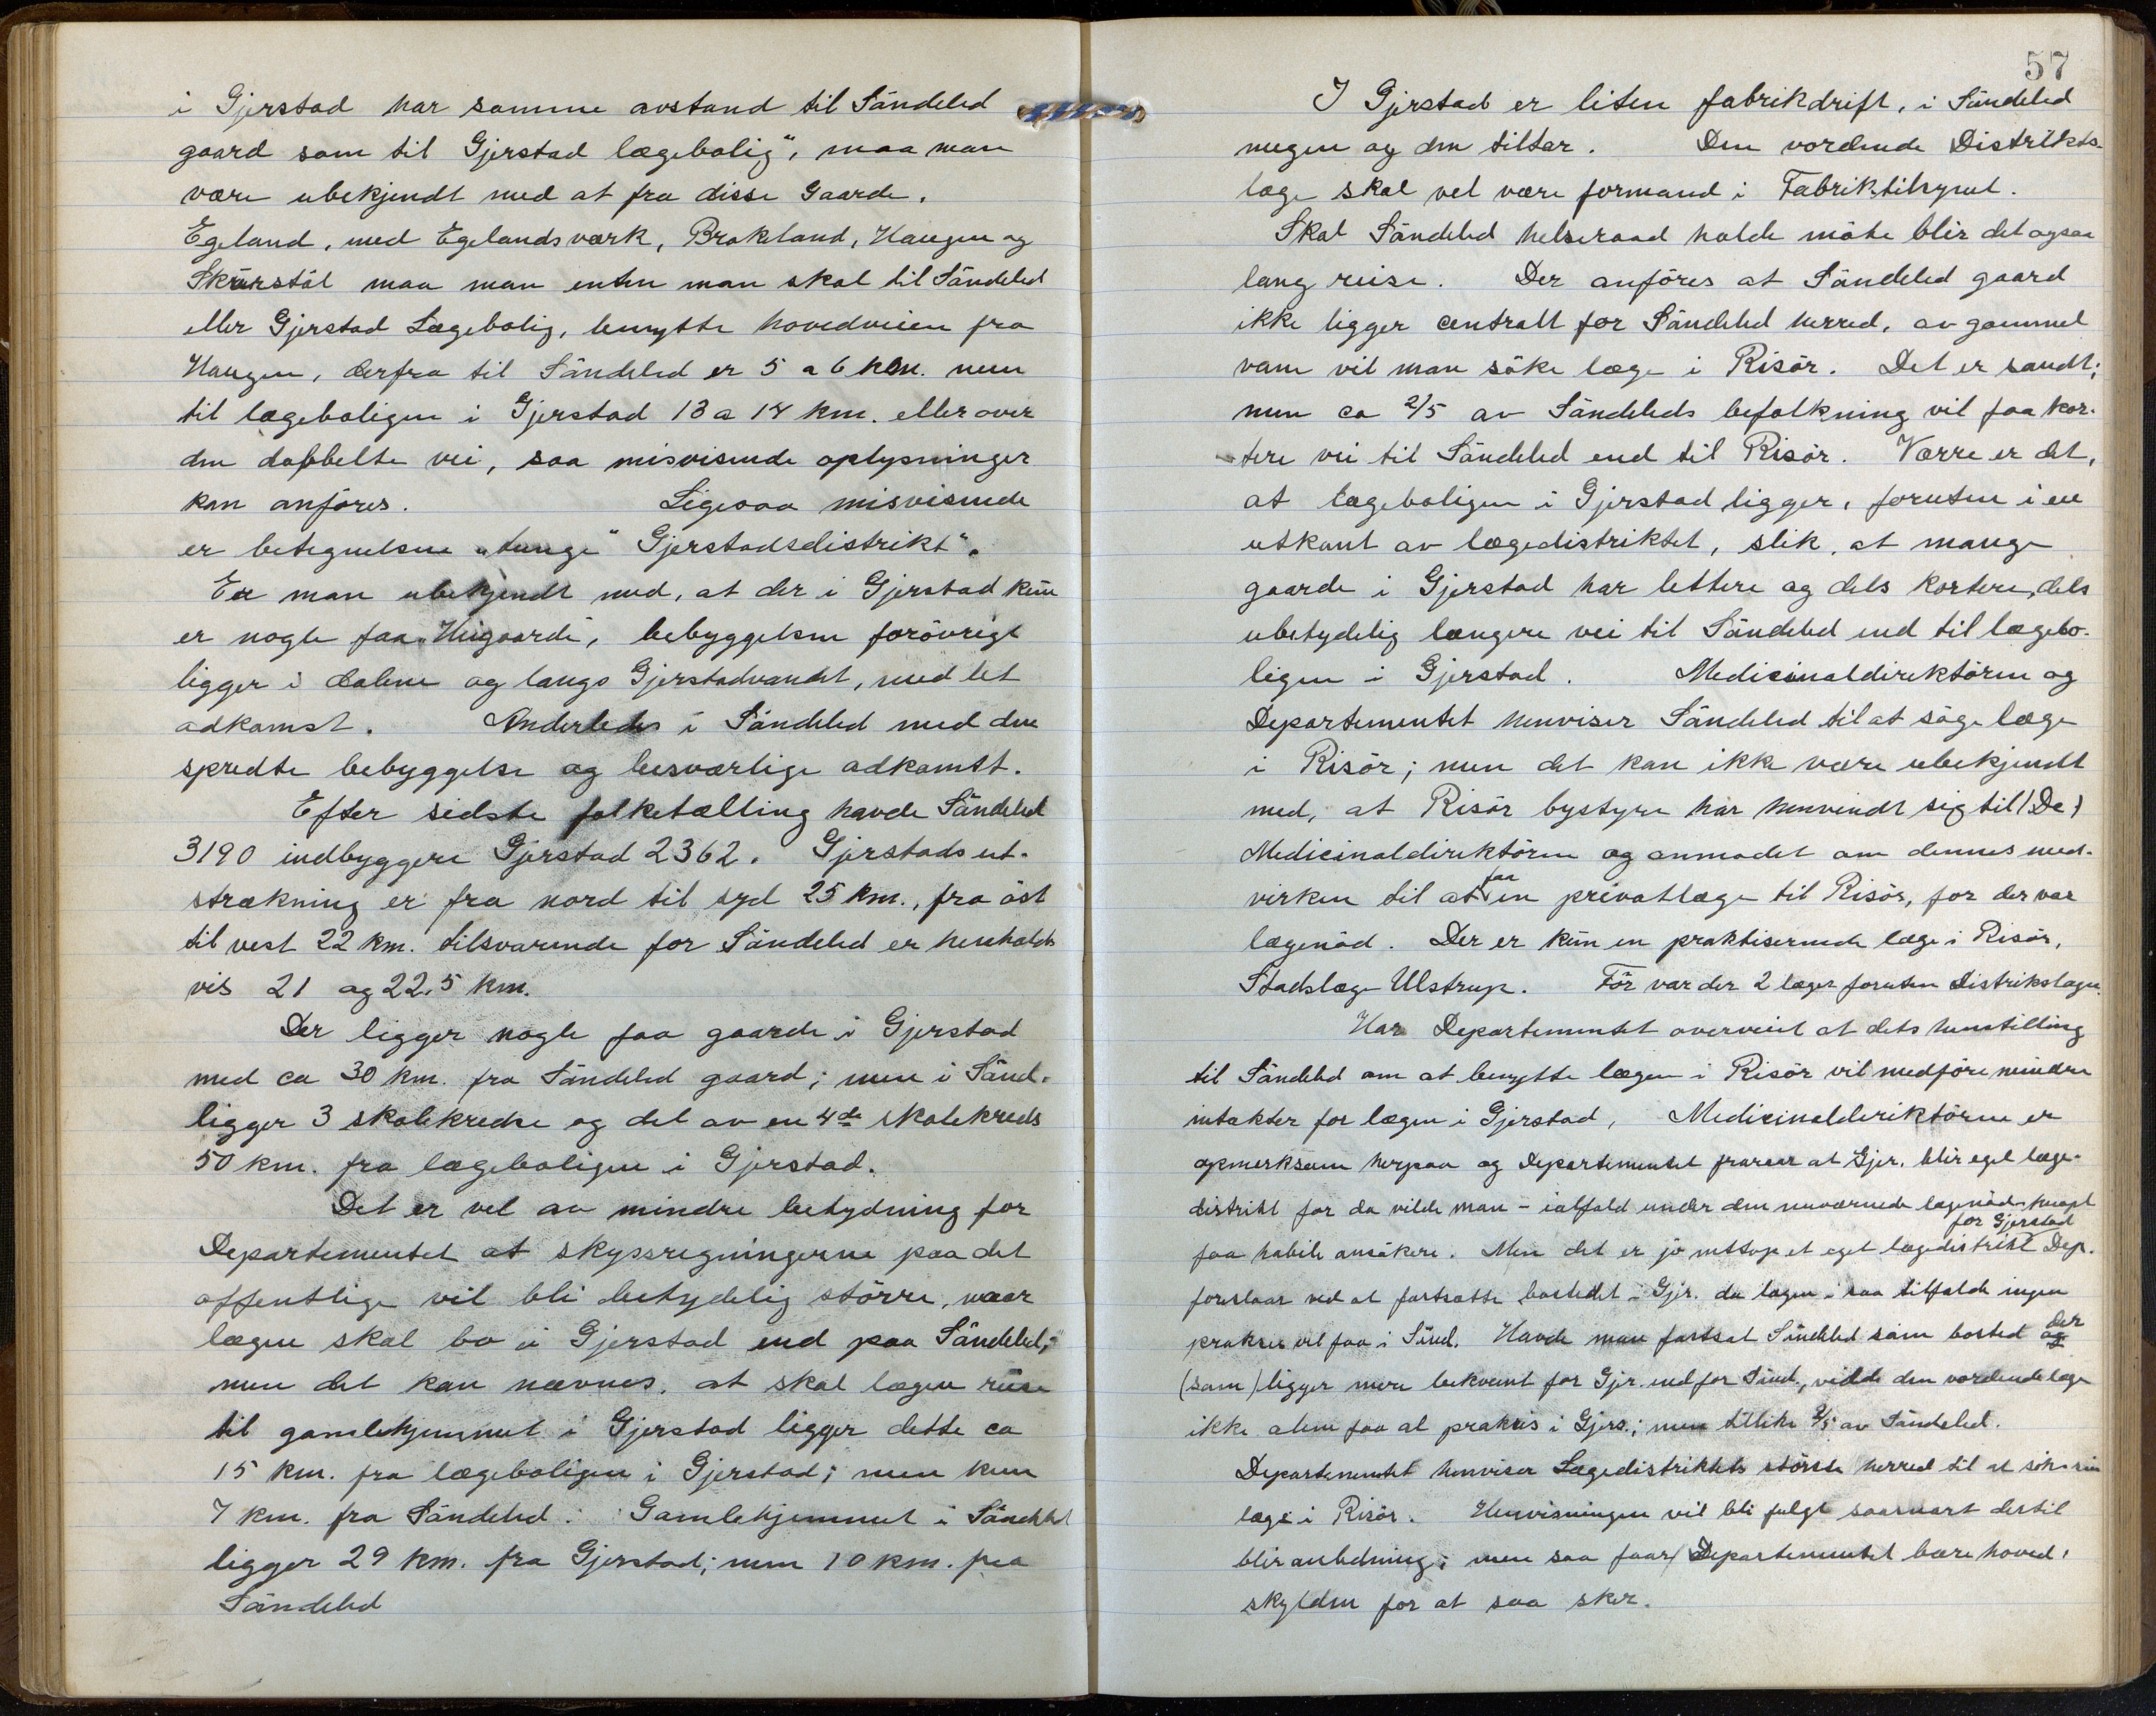 i Gjerstad har samme avstand til Söndeled
gaard som til Gjerstad lægebolig", maa man
være ubekjendt med at fra disse Gaarde.
Egeland, med Egelandsværk, Brokeland, Haugen og
Skorstöl maa man enten man skal til Söndeled
eller Gjerstad Lægebolig, benytte hovedveien fra
Haugen, derfra til Söndeled er 5 a 6 km. men
til lægeboligen i Gjerstad 13 a 14 km. eller over
den dobbelte vei, saa misvisende oplysninger
kan anföres. Ligesaa misvisende
er betegnelsen "tunge" Gjerstadsdistrikt".
Er man ubekjendt med, at der i Gjerstad kun
er nogle faa "Heigaarde", bebyggelsen forövrigt
ligger i dalene og langs Gjerstadvandet, med let
adkomst. Anderledes i Söndeled med den
spredte bebyggelse og besværlige adkomst.
Efter sidste folketælling havde Söndeled
3190 indbyggere Gjerstad 2362. Gjerstads ut-
strækning er fra nord til syd 25 km., fra öst
til vest 22 km. tilsvarende for Söndeled er henholds
vis 21 og 22,5 km.
Der ligger nogle faa gaarde i Gjerstad
med ca 30 km. fra Söndeled gaard; men i Sönd.
ligger 3 skolekredse og del av en 4de skolekreds
50 km. fra lægeboligen i Gjerstad.
Det er vel av mindre betydning for
Departementet at skyssregningerne paa det
offentlige vil bli betydelig större, naar
lægen skal bo i Gjerstad end paa Söndeled;
men det kan nævnes, at skal lægen reise
til gamlehjemmet i Gjerstad ligger dette ca
15 km. fra lægeboligen i Gjerstad; men kun
7 km. fra Söndeled. Gamlehjemmet i Söndeled
ligger 29 km. fra Gjerstad; men 10 km. fra
Söndeled
57
I Gjerstad er liten fabrikdrift, i Söndeled
megen og den tiltar. Den vordende Distrikts-
læge skal vel være formand i Fabriktilsynet.
Skal Söndeled helseraad holde möte blir det ogsaa
lang reise. Der anföres at Söndeled gaard
ikke ligger centralt for Söndeled herred, av gammel
vane vil man söke læge i Risör. Det er sandt;
men ca 2/5 av Söndeleds befolkning vil faa kor-
tere vei til Söndeled end til Risör. Værre er det,
at lægeboligen i Gjerstad ligger, foruten i en
utkant av lægedistriktet, slik, at mange
gaarde i Gjerstad har lettere og dels kortere, dels
ubetydelig længere vei til Söndeled end til lægebo-
ligen i Gjerstad. Medicinaldirektören og
Departementet henviser Söndeled til at söge læge
i Risör; men det kan ikke være ubekjendt
med, at Risör bystyre har henvendt sig til (De)
Medicinaldirektören og anmodet om dennes med-
virken til at faa en privatlæge til Risör, for der var
lægenöd. Der er kun en praktiserende læge i Risör,
Stadslæge Ulstrup. För var der 2 læger foruten Distrikslægen.
Har Departementet overveiet at dets henstilling
til Söndeled om at benytte lægen i Risör vil medföre mindre
intækter for lægen i Gjerstad, Medicinalderiktören er
opmerksom herpaa og Departementet fraraar at Gjer. blir eget læge-
distrikt for da vilde man - ialfald under den nuværende lægenöd - neppe
faa habile ansökere. Men det er jo netop et eget lægedistrikt for Gjerstad Dep.
foreslaar ved at fastsætte bostedet i Gjr. da lægen i saa tilfælde ingen
praksis vil faa i Sönd. Havde man fastsat Söndeled som bosted der og
(som) ligger mere bekvemt for Gjr. end for Sönd., vilde den vordende læge
ikke alene faa al praksis i Gjers.; men tillike 2/5 av Söndeled.
Departementet henviser Lægedistriktets störste herred til at söke sin
læge i Risör. Henvisningen vil bli fulgt saasnart dertil
blir anledning; men saa faar Departementet bære hoved-
skylden for at saa sker.